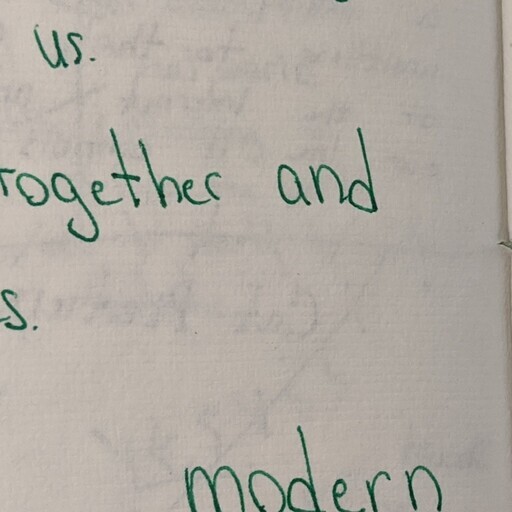 us.
together and
s.
modern